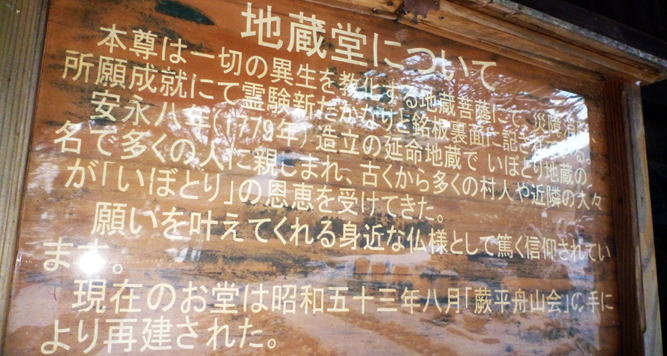 地蔵堂について
本尊は一切の異生を教化する地蔵菩薩にて、災障消
所願成就にて霊験新たかなりと銘板裏面に記されている。
安永八年(1779年)造立の延命地蔵で いぼとり地蔵の
名で多くの人に親しまれ、古くから多くの村人や近隣の人々
が「いぼとり」の恩恵を受けてきた。
願いを叶えてくれる身近な仏様として篤く信仰されてい
ます。
現在のお堂は昭和五十三年八月「蕨平舟山会」の手に
より再建された。